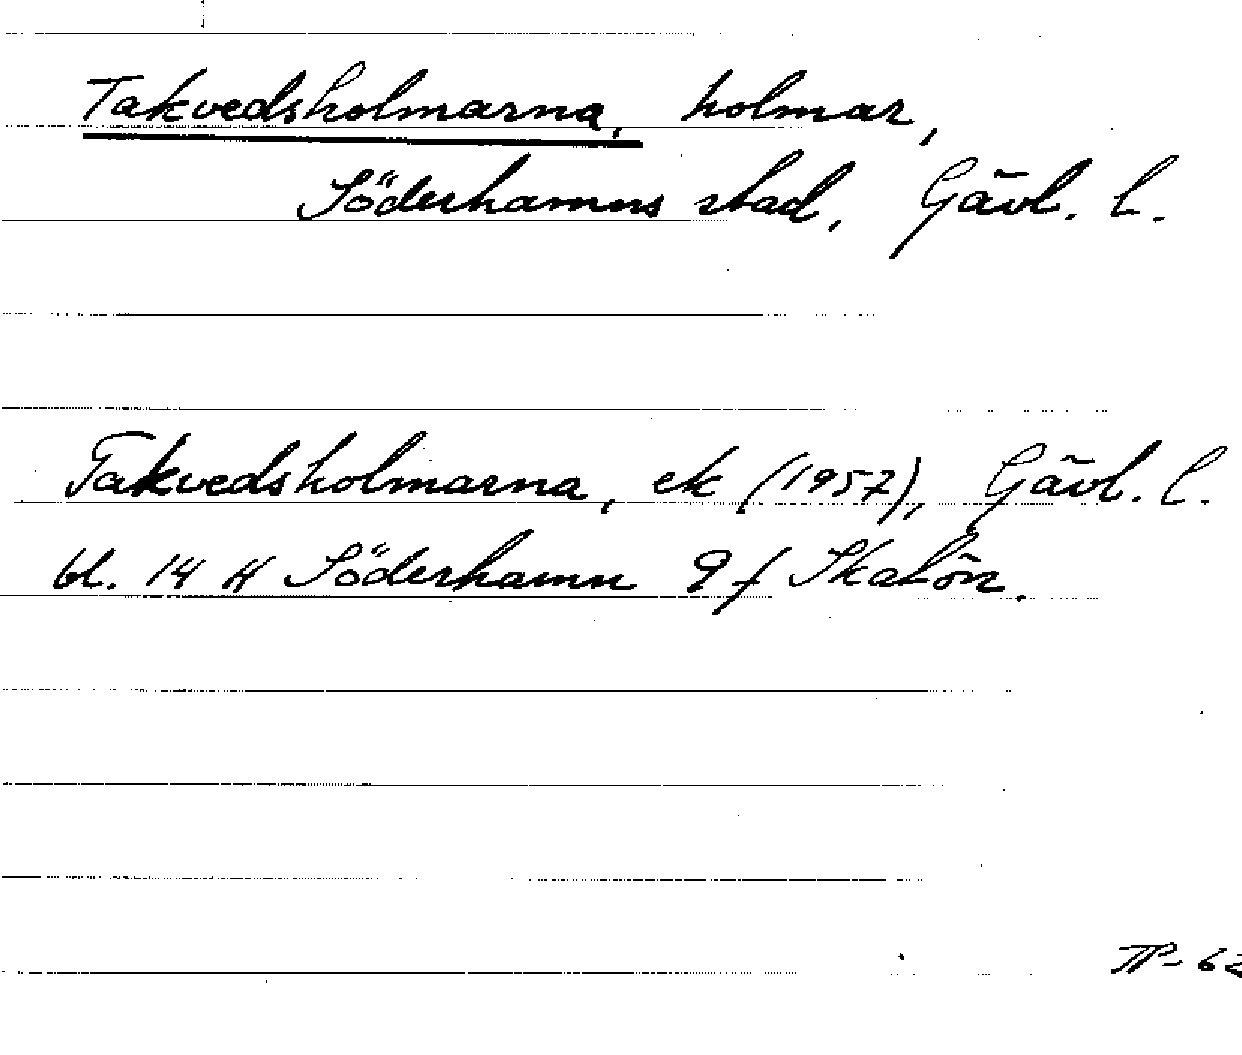 Takvedsholmarna, holmar,
Söderhamns stad, Gävl. l.
Takvedsholmarna, ek (1957), Gävl. l.
bl. 14 H Söderhamn 9 f Skatön.
TP-62